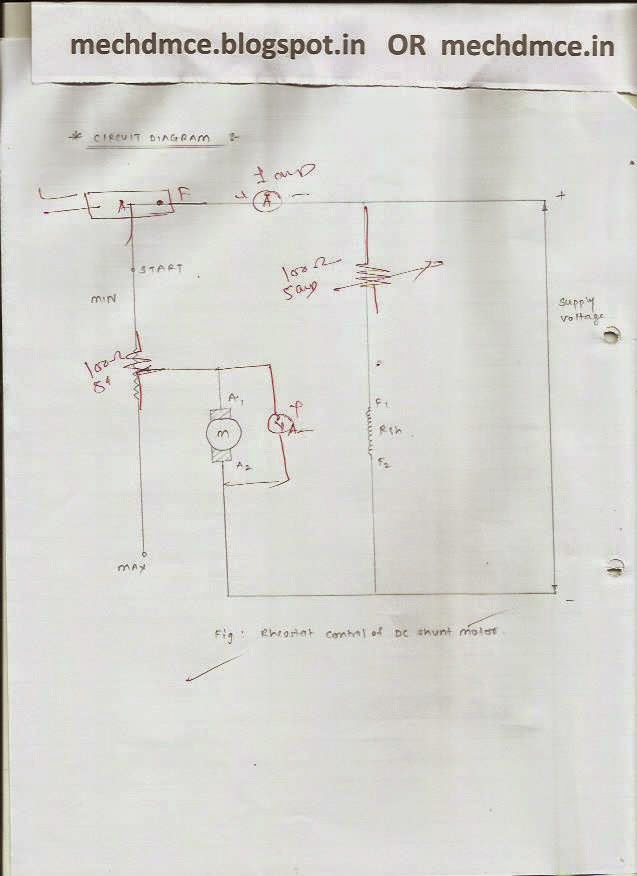 mechdmce.blogspot.in OR mechdmce.in
* CIRCUIT DIAGRAM :-
L A F
+ A -
1 amp
+
START
MIN
100Ω
5 amp
supply
voltage
100Ω
5A
A1
F1
M
Rsh
A2
F2
MAX
-
Fig: Rheostat control of DC shunt motor.